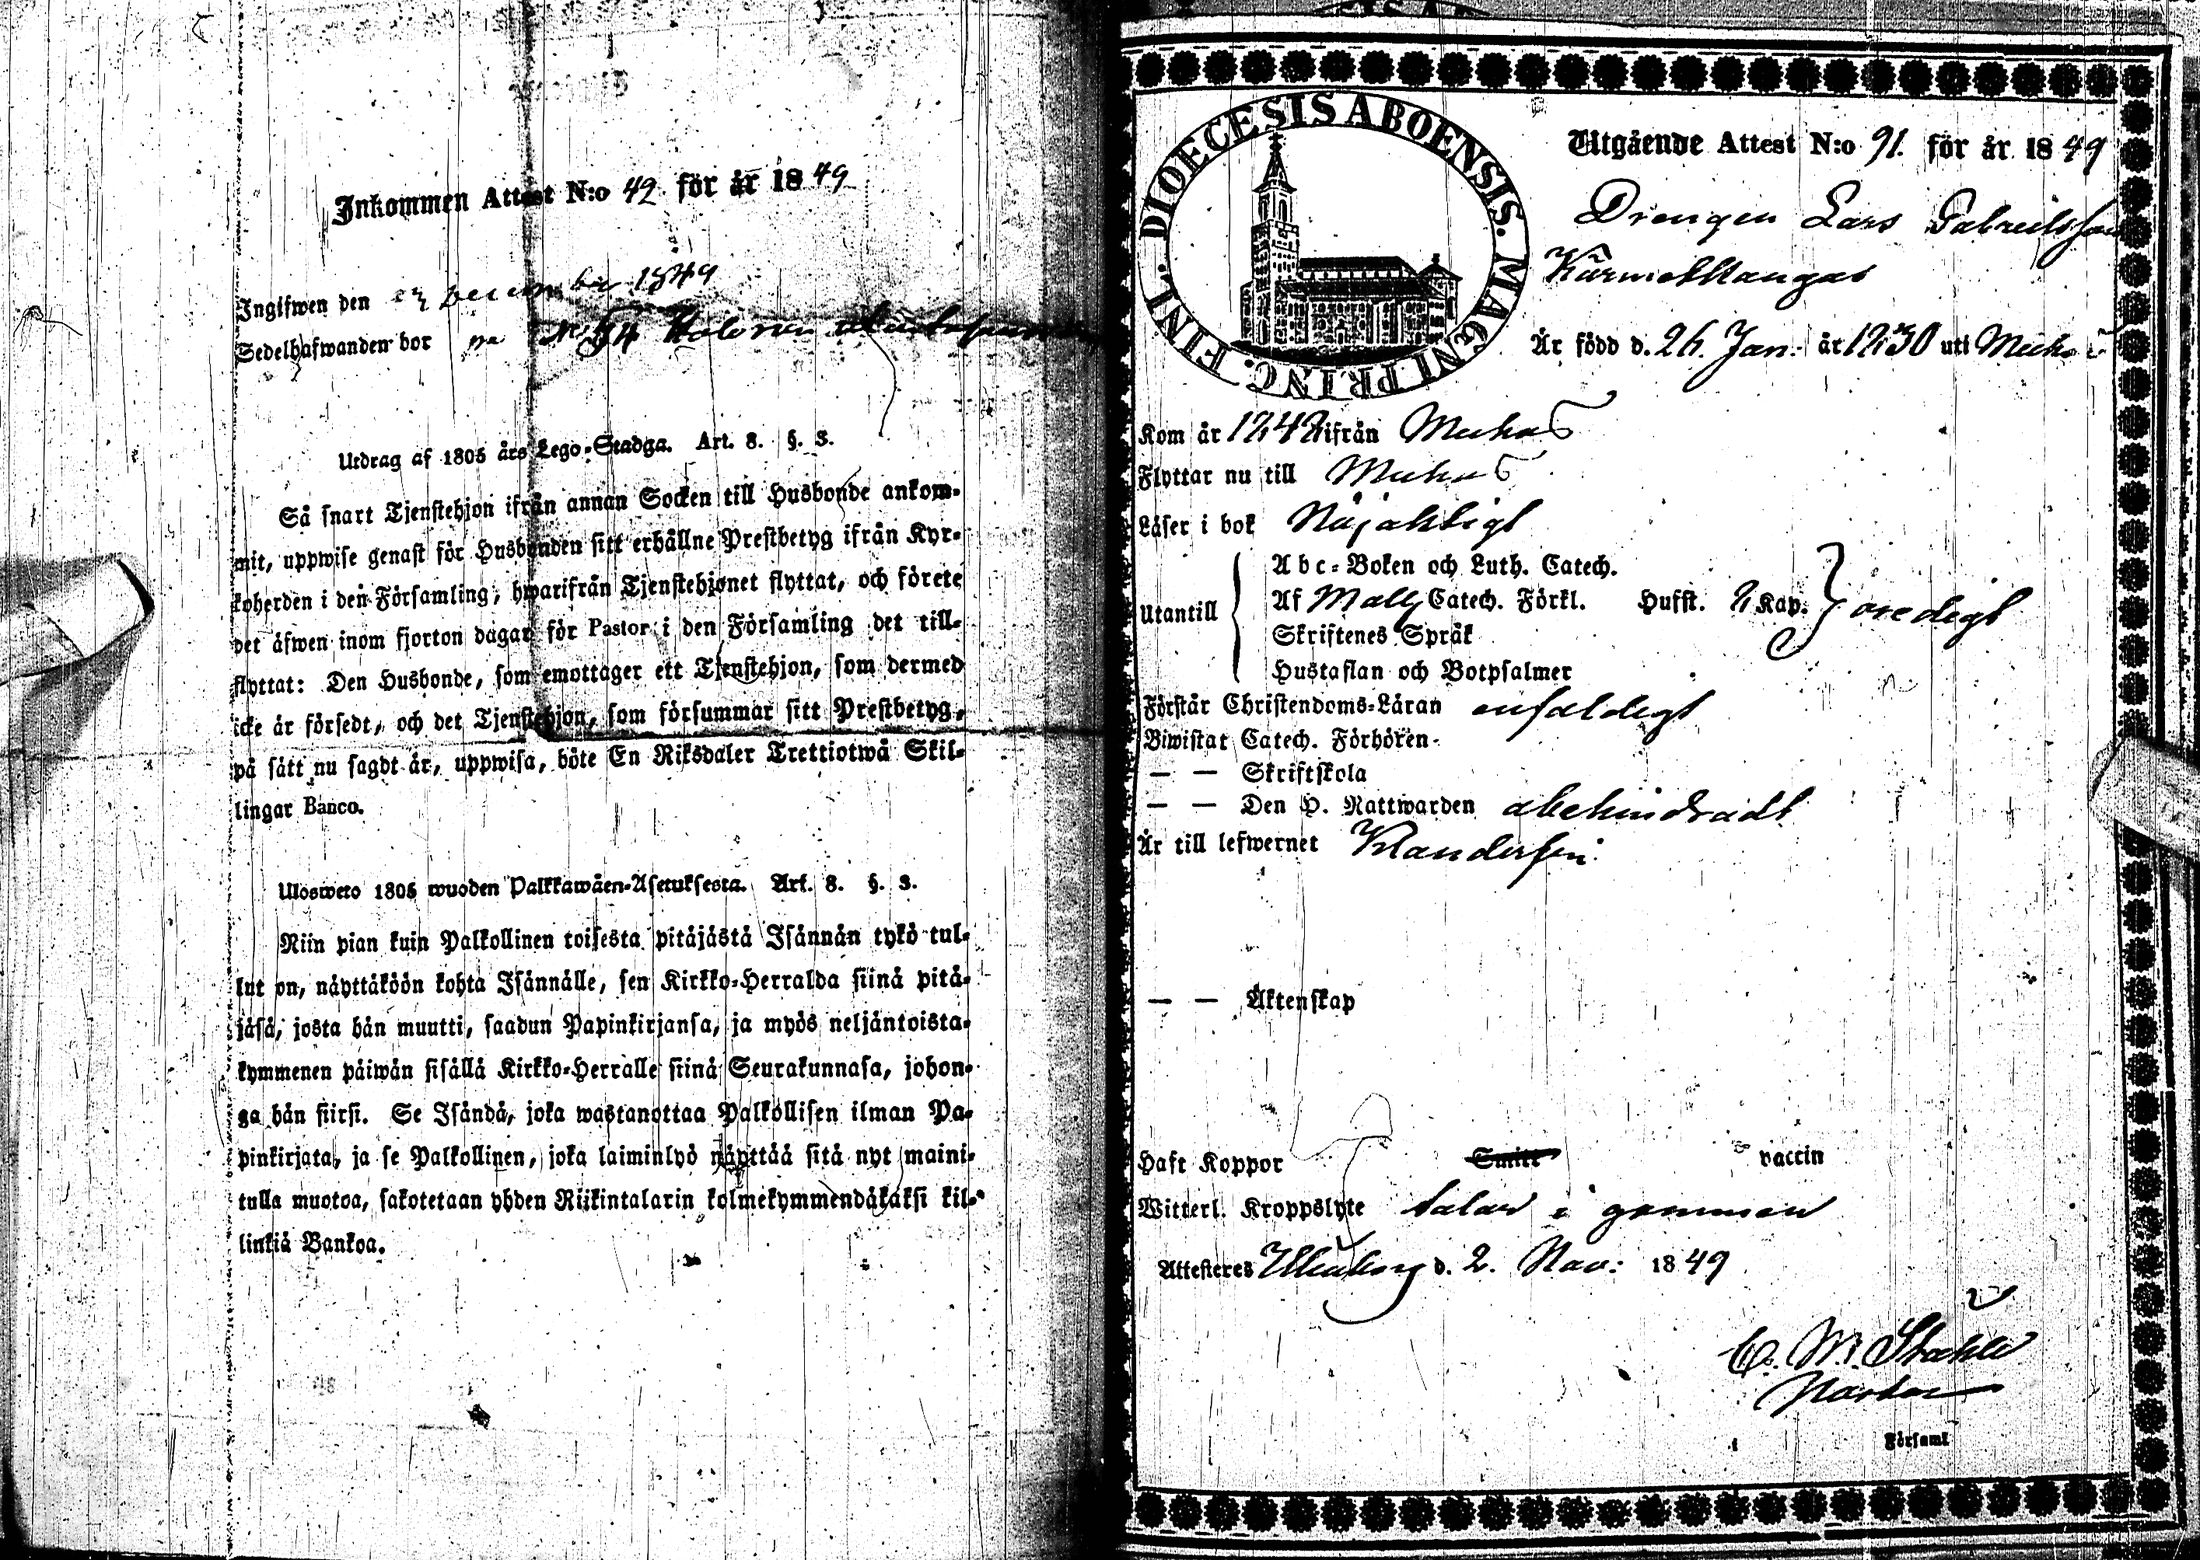 Inkommen Attest N:o 42 för år 1849
Ingifwen den December 1849
Sedelhafwanden bor på N:o 54
Utdrag af 1805 års Lego-Stadga. Art. 8. §. 3.
Så snart Tjenstehjon ifrån annan Socken till Husbonde ankom-
mit, uppwise genast för Husbonden sitt erhållne Prestbetyg ifrån Kyr-
koherden i den Församling, hwarifrån Tjenstehjonet flyttat, och förete
det äfwen inom fjorton dagar för Pastor i den Församling det till-
flyttat: Den Husbonde, som emottager ett Tjenstehjon, som dermed
icke är försedt, och det Tjenstehjon, som försummar sitt Prestbetyg,
på sätt nu sagdt är, uppwisa, böte En Riksdaler Trettiotwå Skil-
lingar Banco.
Ulosweto 1805 wuoden Palkkawäen-Asetuksesta. Art. 8. §. 3.
Niin pian kuin Palkollinen toisesta pitäjästä Isännän tykö tul-
lut on, näyttäköön kohta Isännälle, sen Kirkko-Herralda siinä pitä-
jäsä, josta hän muutti, saadun Papinkirjansa, ja myös neljäntoista-
kymmenen päiwän sisällä Kirkko-Herralle siinä Seurakunnasa, johon-
ga hän siirsi. Se Isändä, joka wastanottaa Palkollisen ilman Pa-
pinkirjata, ja se Palkollinen, joka laiminlyö näyttää sitä nyt maini-
tulla muotoa, sakotetaan yhden Riikintalarin kolmekymmendäkaksi kil-
linkiä Bankoa.
DIOECESIS ABOENSIS. MAGNI PRINC. FINL.
Utgående Attest N:o 91. för år 1849
Drengen Lars Gabrielsson
Är född d. 26. Jan. år 1830 uti
Kom år 1842 ifrån
Flyttar nu till
Läser i bok Nöjaktigt
Utantill
Abc-Boken och Luth. Catech.
Af Catech. Förkl. Hufst. 2 Kap. oredigt
Skriftenes Språk
Hustaflan och Botpsalmer
Förstår Christendoms-Läran enfaldigt
Biwistat Catech. Förhören
— — Skriftskola
— — Den H. Nattwarden obehindradt
Är till lefwernet Klanderfri
— — Äktenskap
Haft Koppor Smitt vaccin
Witterl. Kroppslyte talar i gommen
Attesteres Ulfsborg d. 2. Nov: 1849
C. M. Stahle
Pastor
Församl